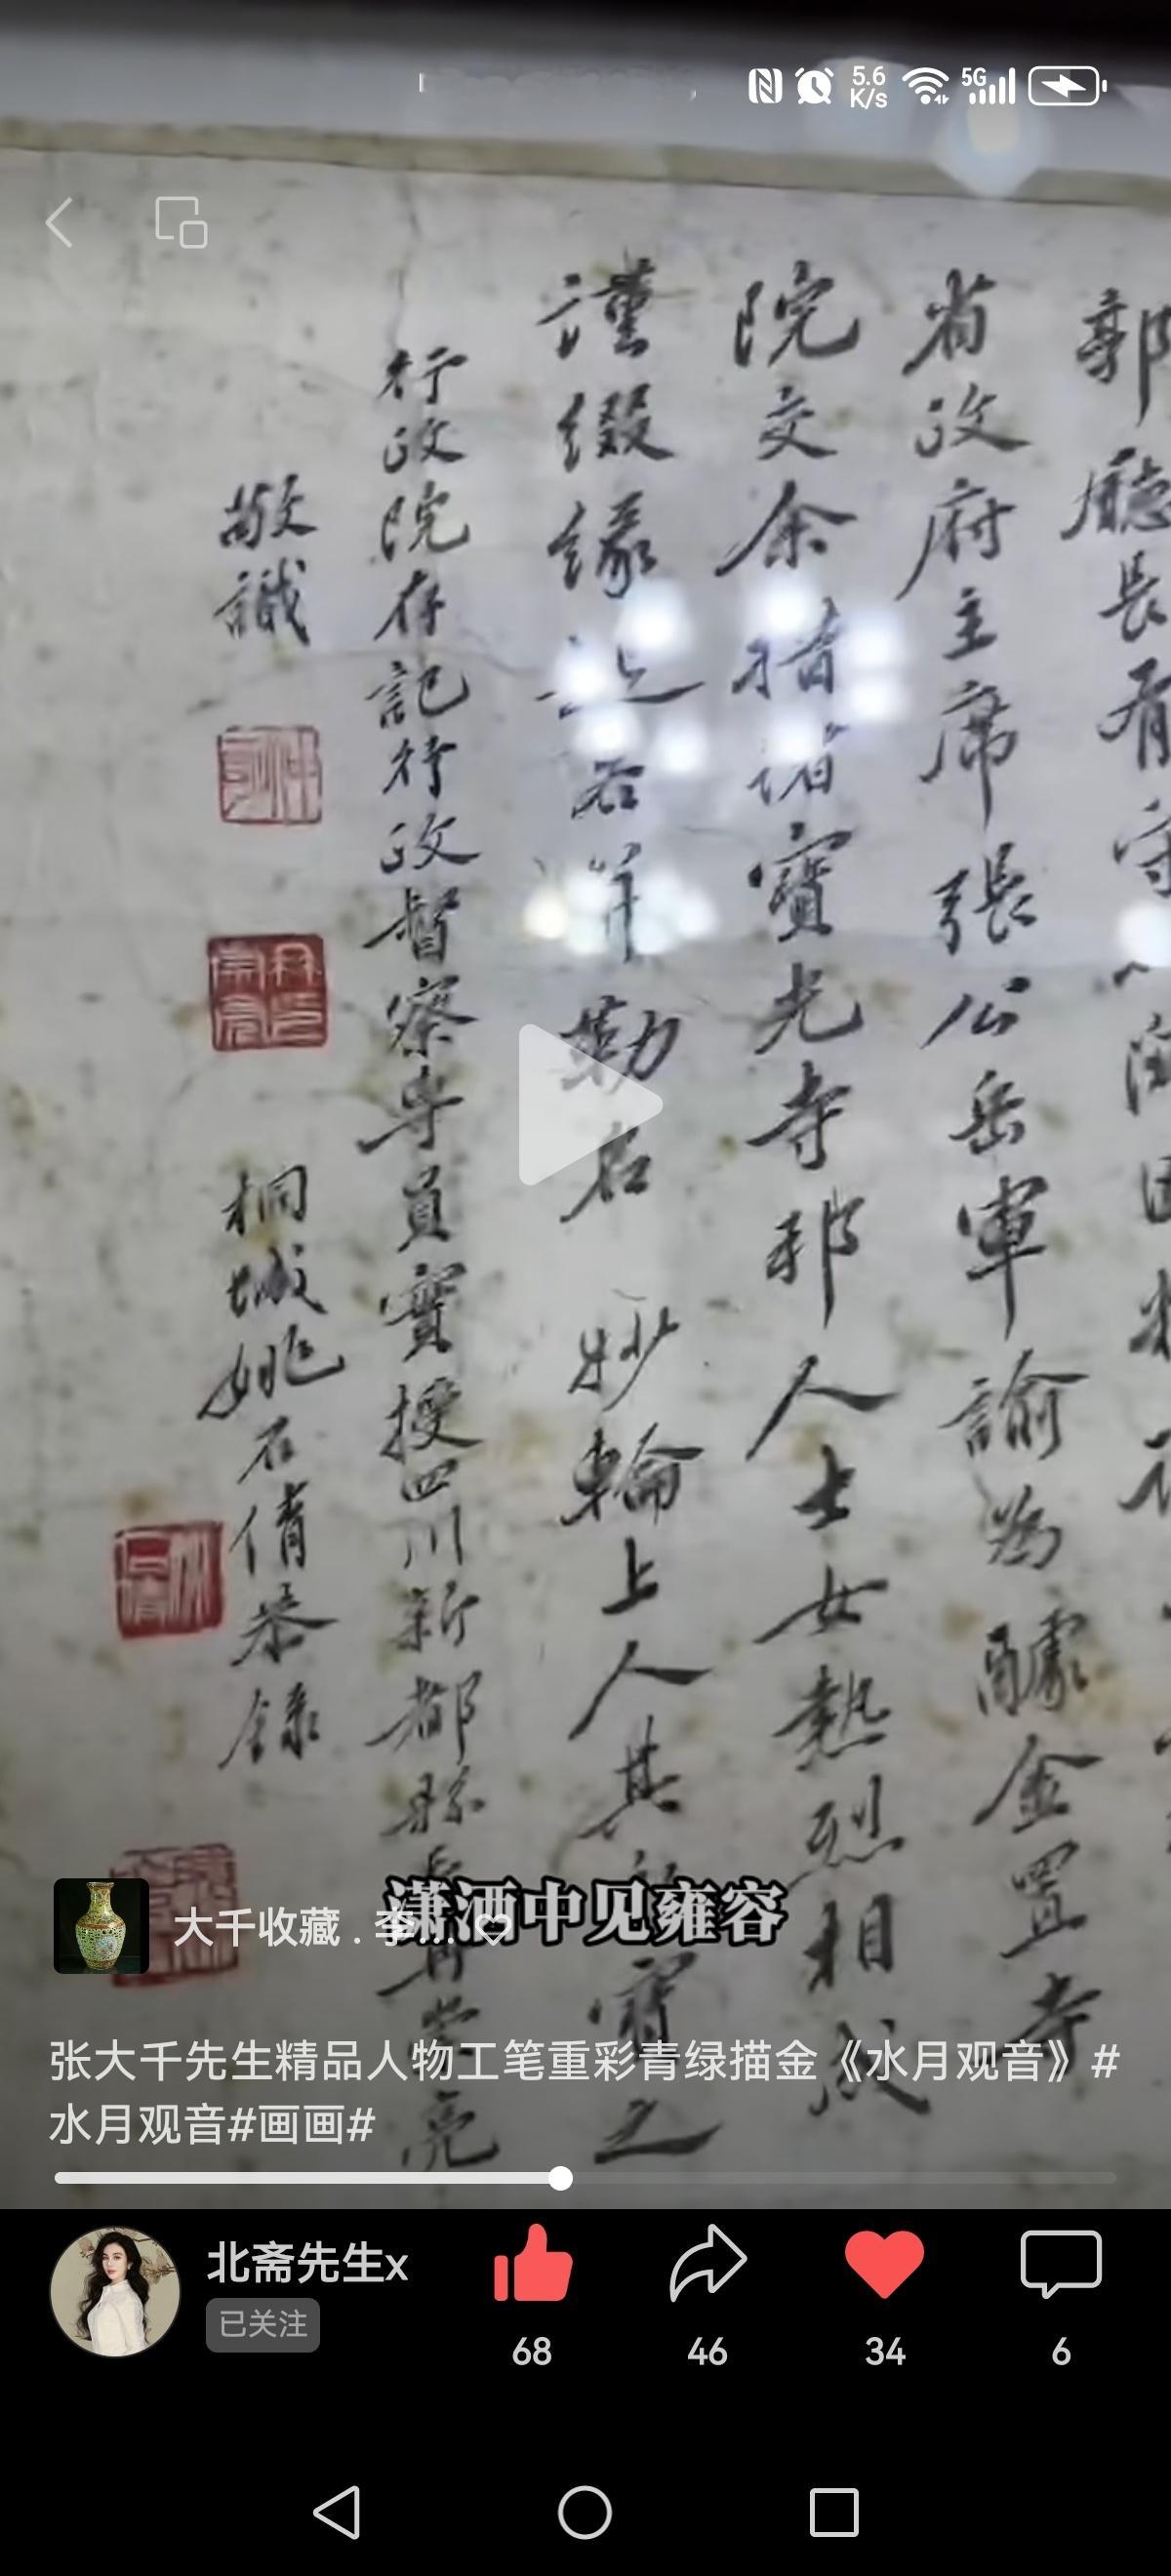 5.6
K/s
5G
郭廳長有守
省政府主席張公岳軍諭為醵金置寺
院交余措諸寶光寺邦人士女熱烈相成
謹綴緣起若并勒名 妙輪上人其寶之
行政院存記行政督察專員實授四川新都縣
敬識
桐城姚石倩恭錄
潇洒中见雍容
大千收藏 . 李...
张大千先生精品人物工笔重彩青绿描金《水月观音》#
水月观音#画画#
北斋先生x
已关注
68
46
34
6